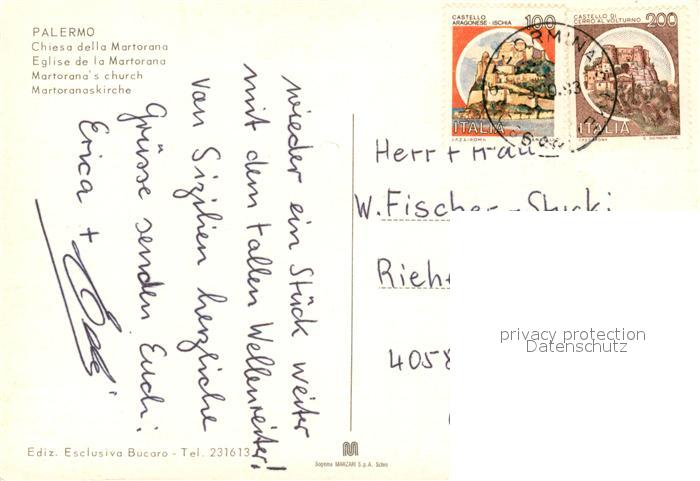 PALERMO
Chiesa della Martorana
Eglise de la Martorana
Martorana's church
Martoranaskirche
CASTELLO
ARAGONESE - ISCHIA
100
ITALIA
I.P.Z.S.-ROMA
CASTELLO DI
CERRO AL VOLTURNO
200
ITALIA
wieder ein Stück weiter
mit dem tollen Wellenreiter!
Von Sizilien herzliche
Grüsse senden Euch:
Erica +
Herr + Frau
W. Fischer - Stucki
Rieh
4058
privacy protection
Datenschutz
Ediz. Esclusiva Bucaro - Tel. 231613
Soprema MARZARI S.p.A. Schio